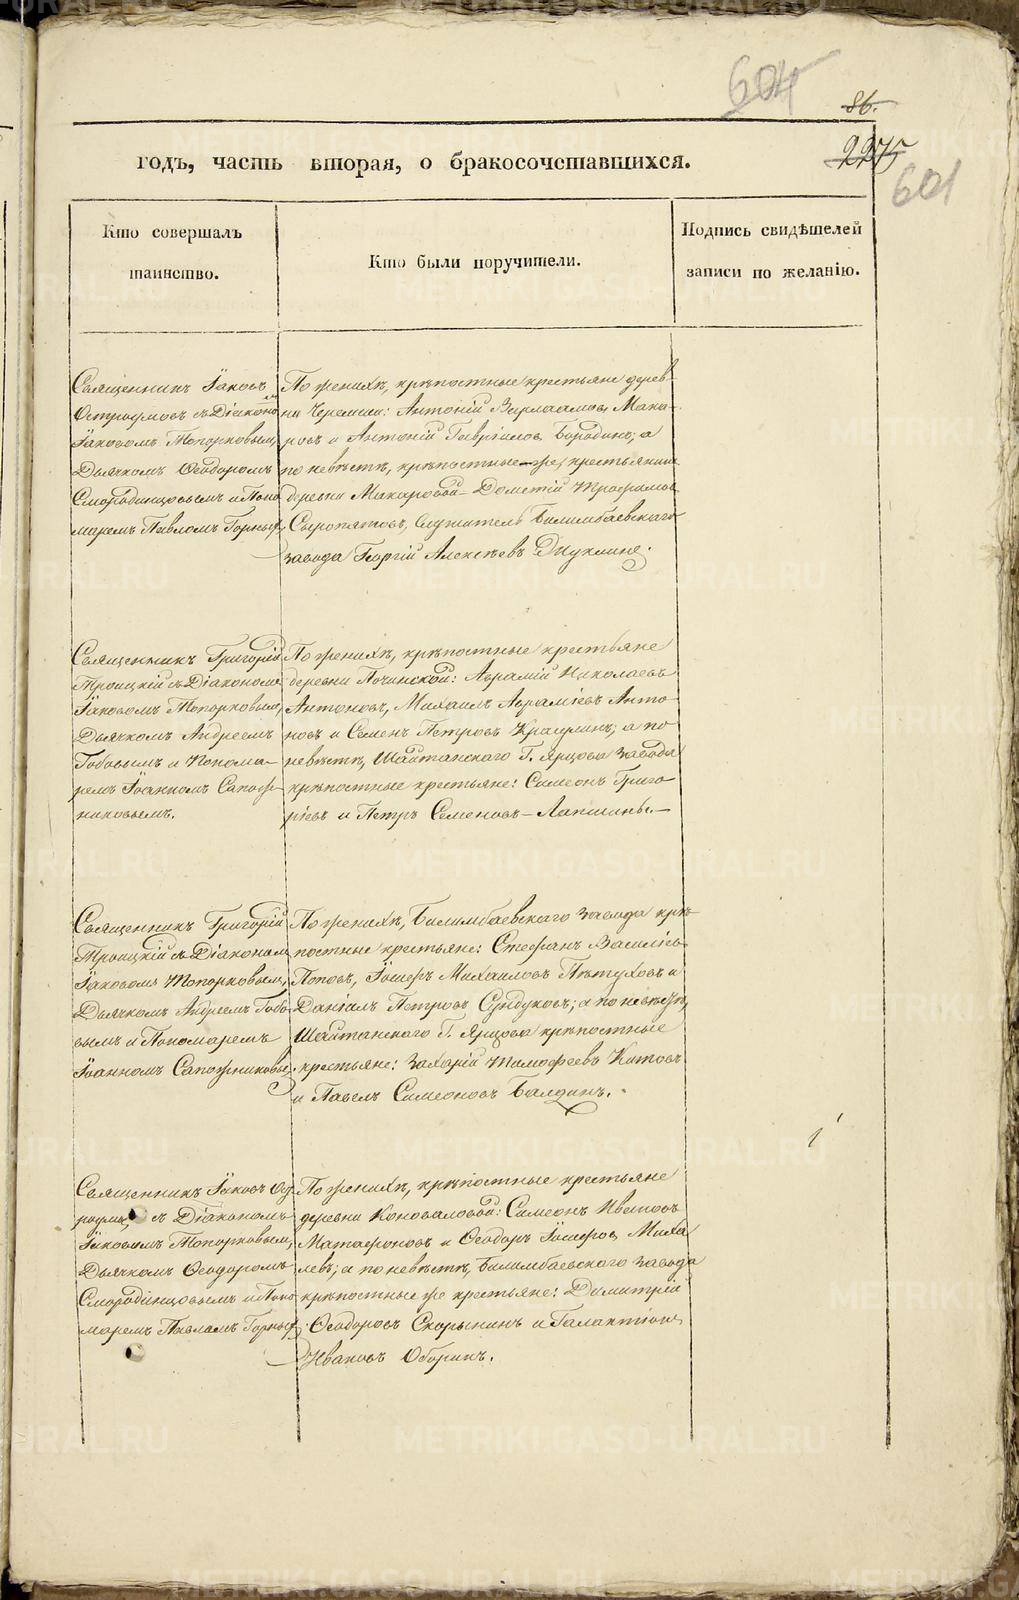 604
86.
2275
601
годъ, часть вторая, о бракосочетавшихся.
Кто совершалъ
таинство.
Кто были поручители.
Подпись свидѣтелей
записи по желанію.
Священникъ Іаковъ
Остроумовъ съ Діаконо
Іаковомъ Топорковым,
Дьячкомъ Ѳеодоромъ
Смородинцовымъ и Поно
маремъ Павломъ Горных
По женихѣ, крѣпостные крестьяне дерев-
ни Черемши: Антоній Варлаамовъ Мака-
ровъ и Антоній Гавріиловъ Бородинъ; а
по невѣстѣ, крѣпостные же, крестьянинъ
деревни Макаровой Дометій Трофимовъ
Сыропятовъ, служитель Билимбаевскаго
завода Георгій Алексѣевъ
Священникъ Григорій
Троицкій съ Діакономъ
Іаковомъ Топорковым,
Дьячкомъ Андреемъ
Бабовымъ и Понома-
ремъ Іоанномъ Сапож-
никовымъ.
По женихѣ, крѣпостные крестьяне
деревни Починской: Авраамій Николаевъ
Антоновъ, Михаилъ Авраміевъ Анто-
новъ и Семенъ Петровъ а по
невѣстѣ, Шайтанскаго Г. Ярцова завода
крѣпостные крестьяне: Симеонъ Григо-
ріевъ и Петръ Семеновъ Лапшины.
Священникъ Григорій
Троицкій съ Діаконом
Іаковомъ Топорковым,
Дьячкомъ Андреемъ Бабо
вымъ и Пономаремъ
Іоанномъ Сапожниковы,
По женихѣ, Билимбаевскаго завода крѣ-
постные крестьяне: Стефанъ Василіевъ
Поповъ, Іосифъ Михаиловъ Пѣтуховъ и
Даніилъ Петровъ Сундуковъ; а по невѣстѣ,
Шайтанскаго Г. Ярцова крѣпостные
крестьяне: Захарій Тимофеевъ Китовъ
и Павелъ Симеоновъ Балдинъ.
Священникъ Іаковъ Ост
роумо съ Діакономъ
Іаковомъ Топорковым,
Дьячкомъ Ѳеодоромъ
Смородинцовымъ и Поно
маремъ Павломъ Горных
По женихѣ, крѣпостные крестьяне
деревни Коноваловой: Симеонъ Ивановъ
Матафоновъ и Ѳеодоръ Іосифовъ Миха
левъ; а по невѣстѣ, Билимбаевскаго завода
крѣпостные же крестьяне: Димитрій
Ѳеодоровъ Скорынинъ и Галактіонъ
Ивановъ Оборинъ.
METRIKI.GASO-URAL.RU